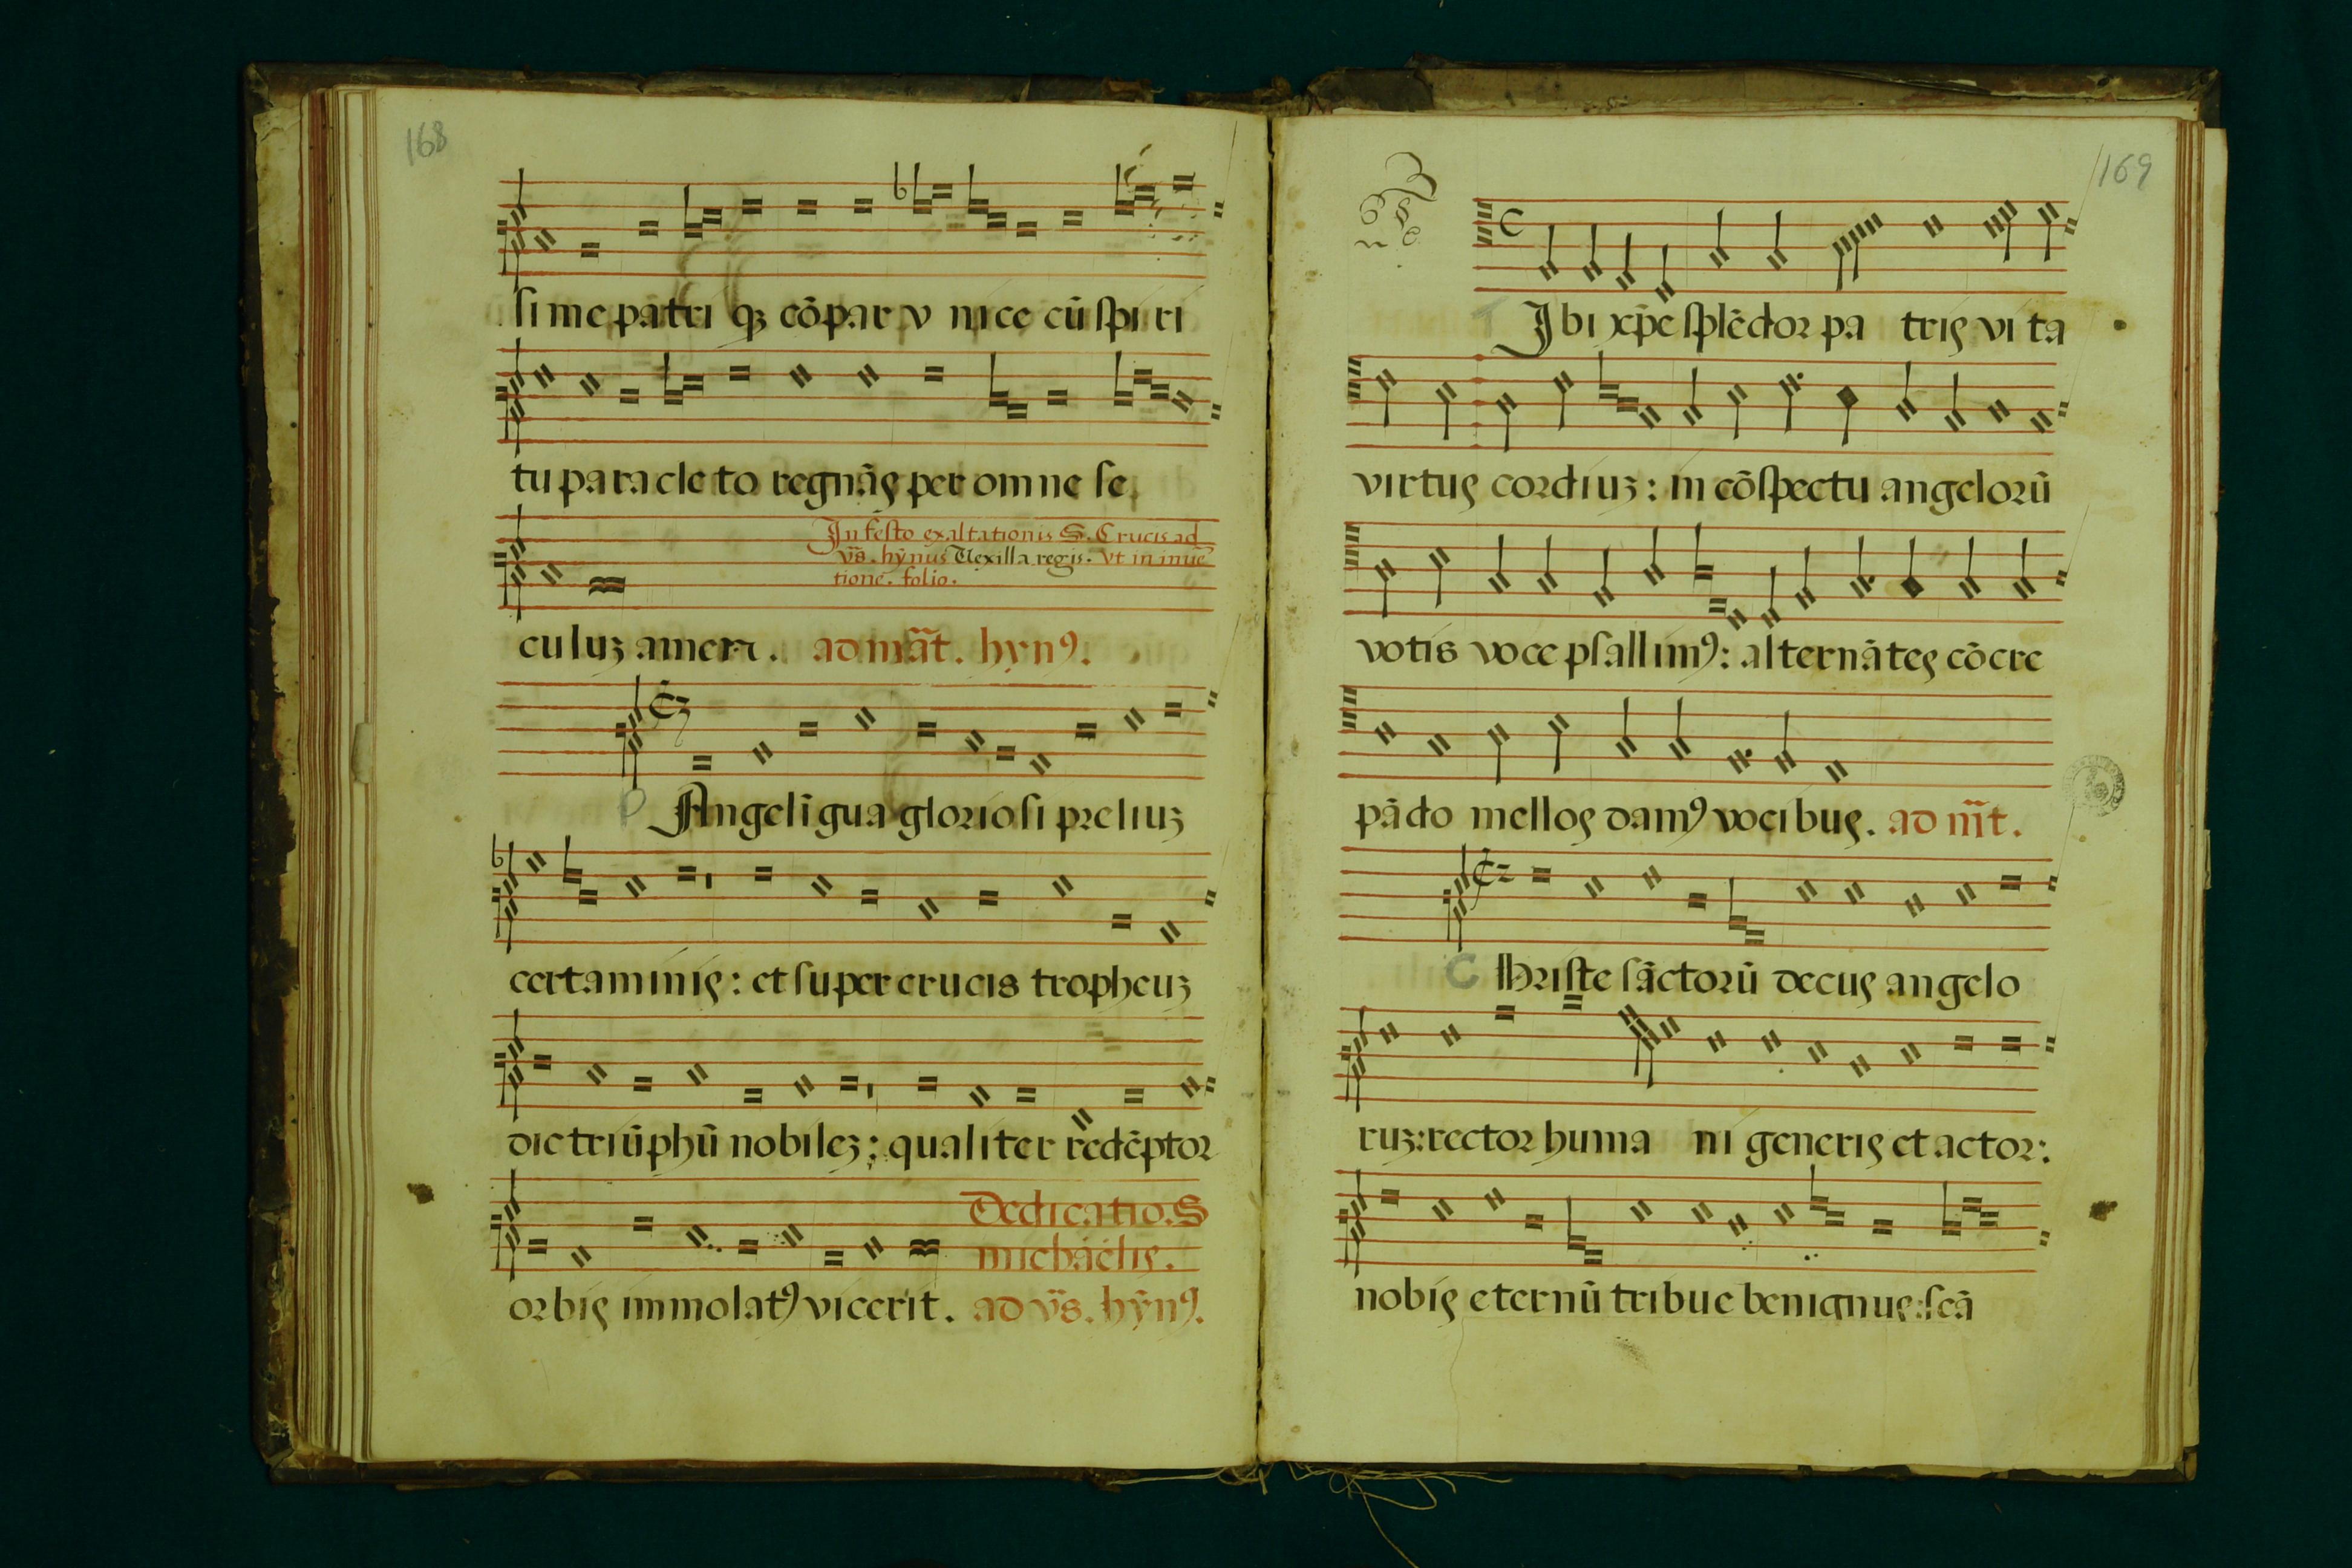 168
si me patri qȝ cōpar v nice cū spi ri
tu pa ra cle to regnās per om ne se
In festo exaltationis S. Crucis ad
vs̄. hȳnus Vexilla regis. vt in inuē
tione. folio.
cu luȝ amen. ad māt. hyn⁹.
P Angelīgua gloriosi preliuȝ
certaminis: et super crucis tropheuȝ
dic triūphū nobileȝ: qualiter redēptor
Dedicatio. S
michaelis.
orbis immolat⁹ vicerit. ad vs̄. hȳn⁹.
169
T Ibi xp̄e splēdor pa tris vi ta
virtus cordiuȝ: in cōspectu angelorū
votis voce psallim⁹: alternātes cōcre
pādo mellos dam⁹ vocibus. ad m̄t.
C Hriste sāctorū decus angelo
ruȝ: rector huma ni generis et actor:
nobis eternū tribue benignus: scā